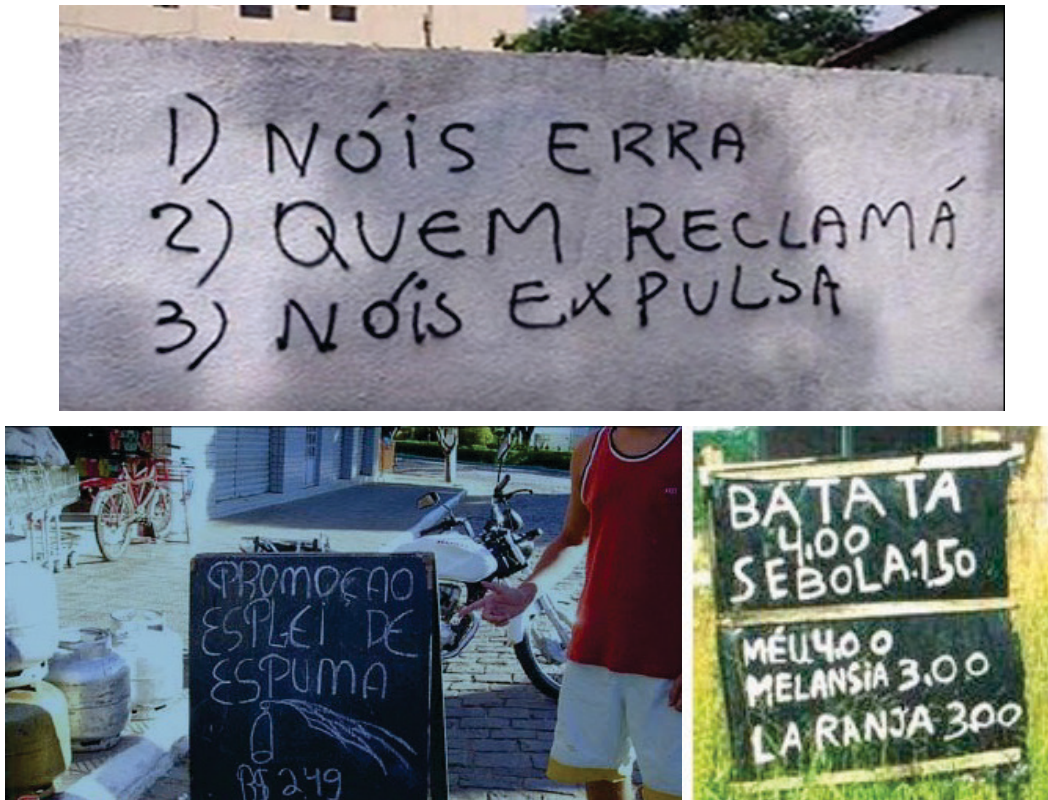 1) NÓIS ERRA
2) QUEM RECLAMÁ
3) NÓIS EXPULSA
PROMOÇAO
ESPLEI DE
ESPUMA
R$ 2,49
BATATA
4,00
SEBOLA.1,50
MÉU4.00
MELANSIA 3.00
LARANJA 3,00